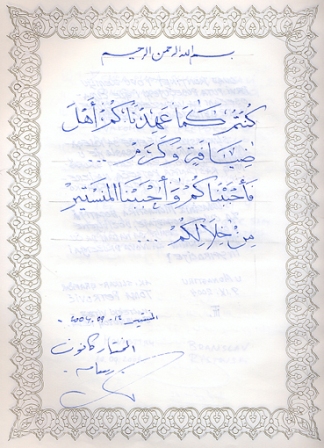 بسم الله الرحمن الرحيم
كنتم كما عهدناكم أهل
ضيافة وكرم ...
فأحببناكم وأحببنا المنستير
من خلالكم ...
المنستير
المختار كانون